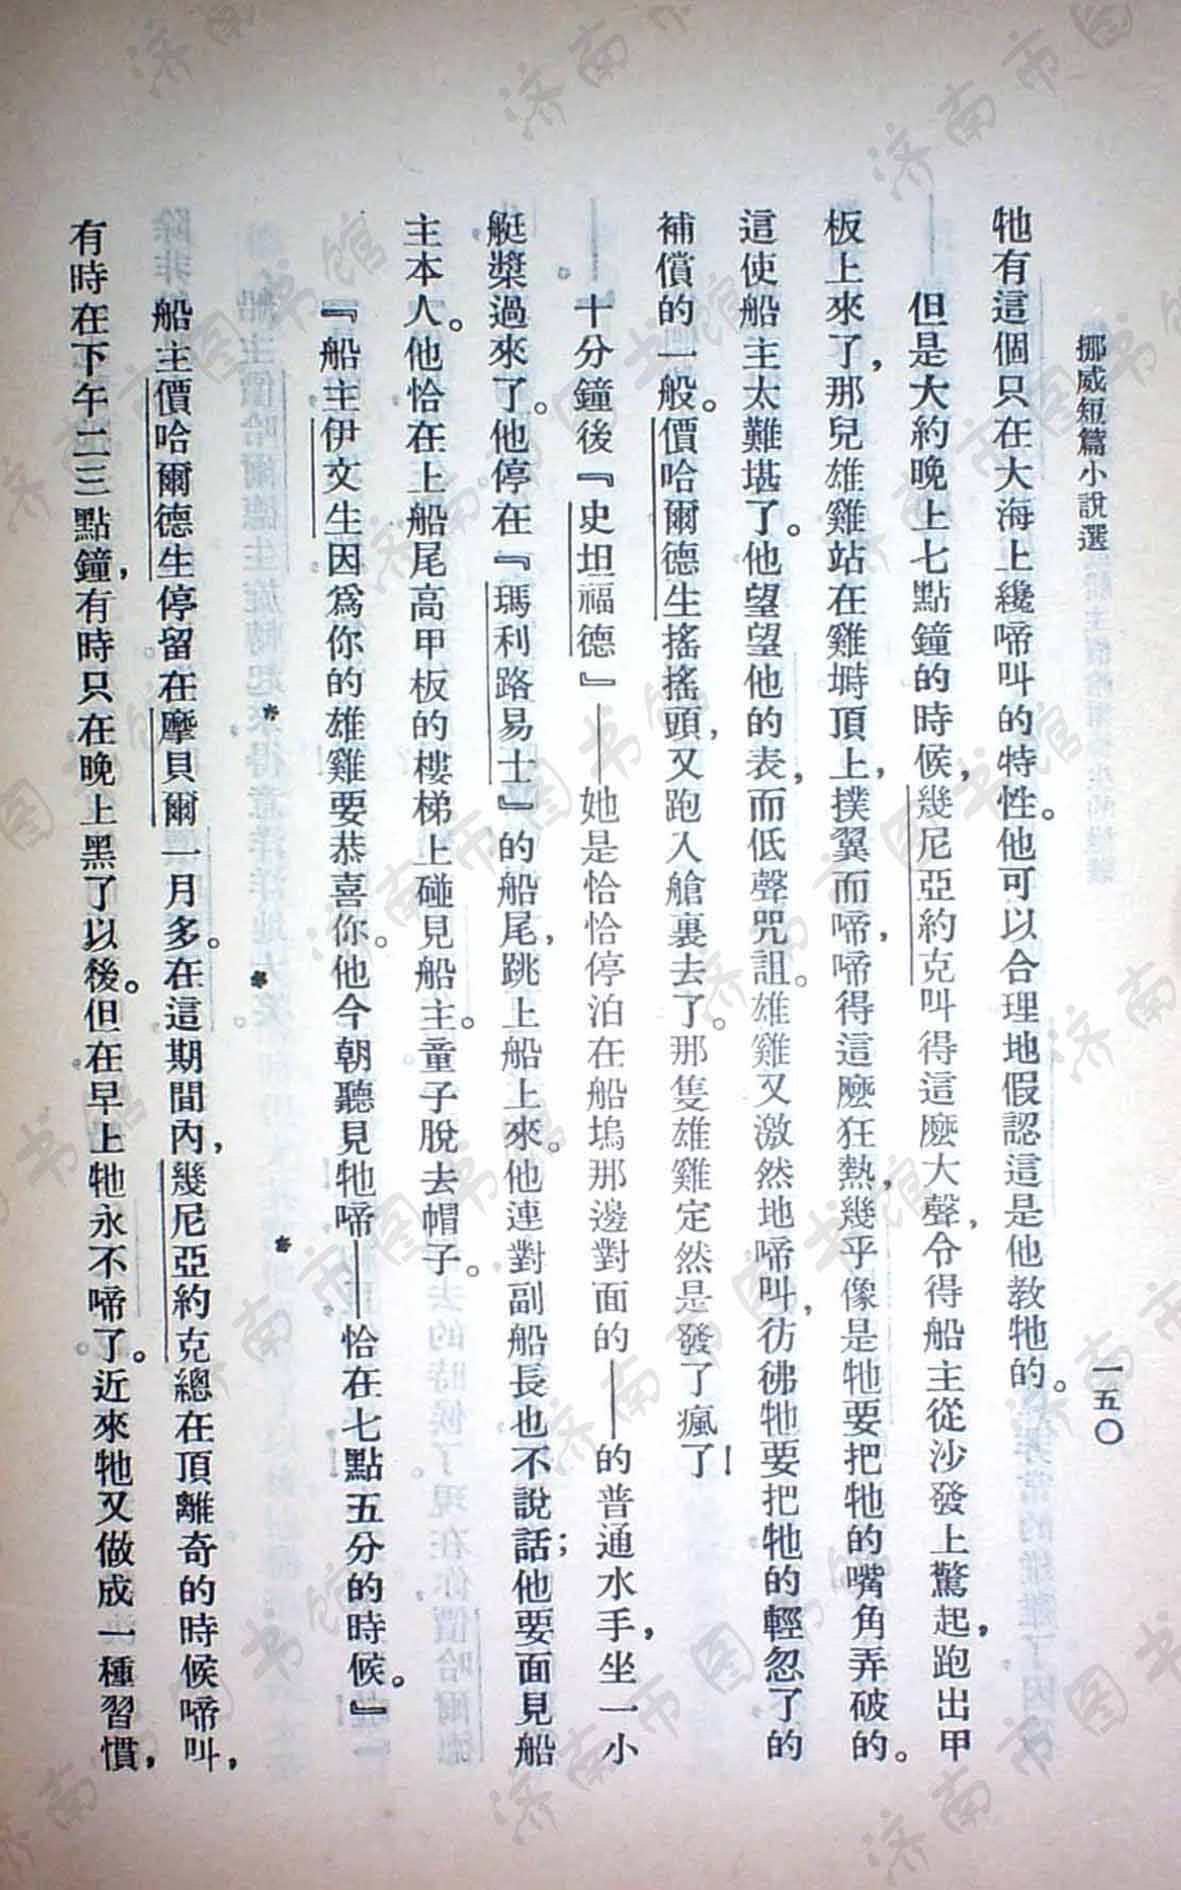 挪威短篇小說選
一五〇
牠有這個只在大海上纔啼叫的特性。他可以合理地假認這是他教牠的。
——但是大約晚上七點鐘的時候，幾尼亞約克叫得這麼大聲，令得船主從沙發上驚起，跑出甲
板上來了，那兒雄雞站在雞塒頂上，撲翼而啼，啼得這麼狂熱，幾乎像是牠要把牠的嘴角弄破的。
這使船主太難堪了。他望望他的表，而低聲咒詛。雄雞又激然地啼叫，彷彿牠要把牠的輕忽了的
補償的一般。價哈爾德生搖搖頭，又跑入艙裏去了。那隻雄雞定然是發了瘋了！
——十分鐘後『史坦福德』——她是恰恰停泊在船塢那邊對面的——的普通水手，坐一小
艇槳過來了。他停在『瑪利路易士』的船尾，跳上船上來。他連對副船長也不說話；他要面見船
主本人。他恰在上船尾高甲板的樓梯上碰見船主。童子脫去帽子。
『船主伊文生因爲你的雄雞要恭喜你。他今朝聽見牠啼——恰在七點五分的時候。』
* * *
船主價哈爾德生停留在摩貝爾一月多。在這期間內，幾尼亞約克總在頂離奇的時候啼叫，
有時在下午二三點鐘，有時只在晚上黑了以後。但在早上牠永不啼了。近來牠又做成一種習慣，
济南市图书馆